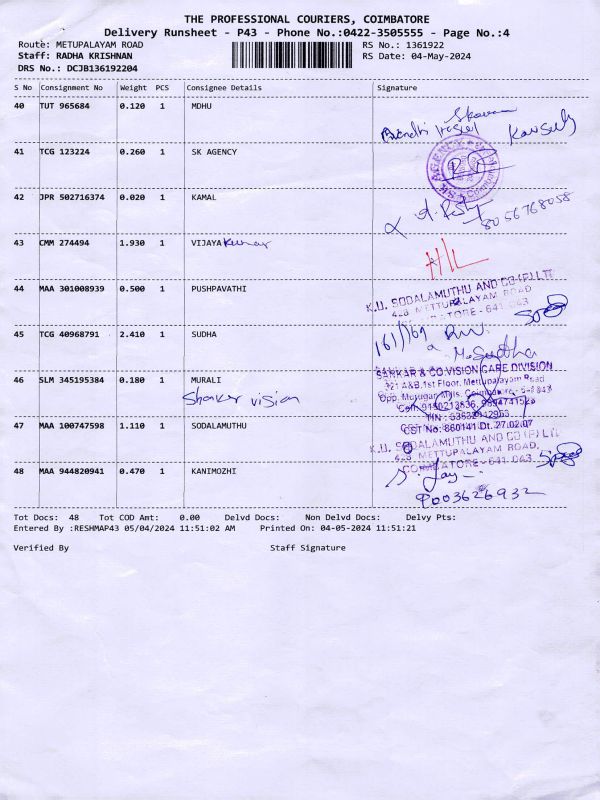 THE PROFESSIONAL COURIERS, COIMBATORE
Delivery Runsheet - P43 - Phone No.:0422-3505555 - Page No.:4
Route: METUPALAYAM ROAD RS No.: 1361922
Staff: RADHA KRISHNAN RS Date: 04-May-2024
DRS No.: DCJB136192204
S No Consignment No Weight PCS Consignee Details Signature
40 TUT 965684 0.120 1 MDHU
41 TCG 123224 0.260 1 SK AGENCY
42 JPR 502716374 0.020 1 KAMAL
8056768058
43 CMM 274494 1.930 1 VIJAYA Kumar
H/L
44 MAA 301008939 0.500 1 PUSHPAVATHI
K.U. SODALAMUTHU AND CO (P) LTD
METTUPALAYAM ROAD
COIMBATORE - 641 043
45 TCG 40968791 2.410 1 SUDHA
M. Sudha
46 SLM 345195384 0.180 1 MURALI
Shanker vision
SANKAR & CO VISION CARE DIVISION
321 A&B,1st Floor, Mettupalayam Road
CST No: 860141 Dt. 27.02.07
47 MAA 100747598 1.110 1 SODALAMUTHU
K.U. SODALAMUTHU AND CO (P) LTD
METTUPALAYAM ROAD,
COIMBATORE - 641 043
48 MAA 944820941 0.470 1 KANIMOZHI
9003626932
Tot Docs: 48 Tot COD Amt: 0.00 Delvd Docs: Non Delvd Docs: Delvy Pts:
Entered By :RESHMAP43 05/04/2024 11:51:02 AM Printed On: 04-05-2024 11:51:21
Verified By Staff Signature